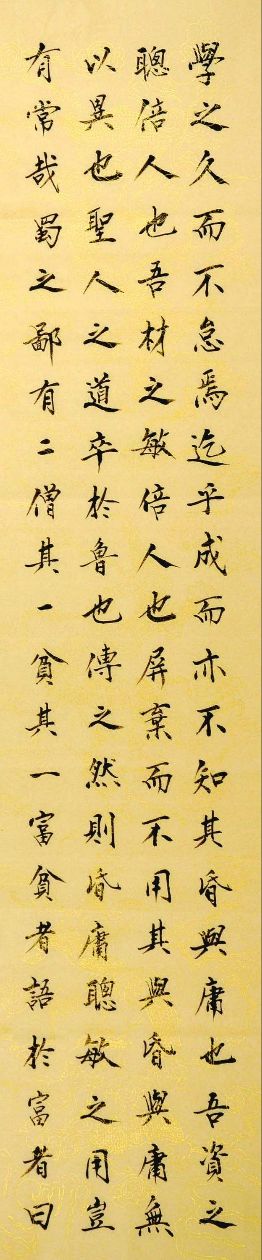 學之久而不怠焉迄乎成而亦不知其昏與庸也吾資之
聰倍人也吾材之敏倍人也屏棄而不用其與昏與庸無
以異也聖人之道卒於魯也傳之然則昏庸聰敏之用豈
有常哉蜀之鄙有二僧其一貧其一富貧者語於富者曰